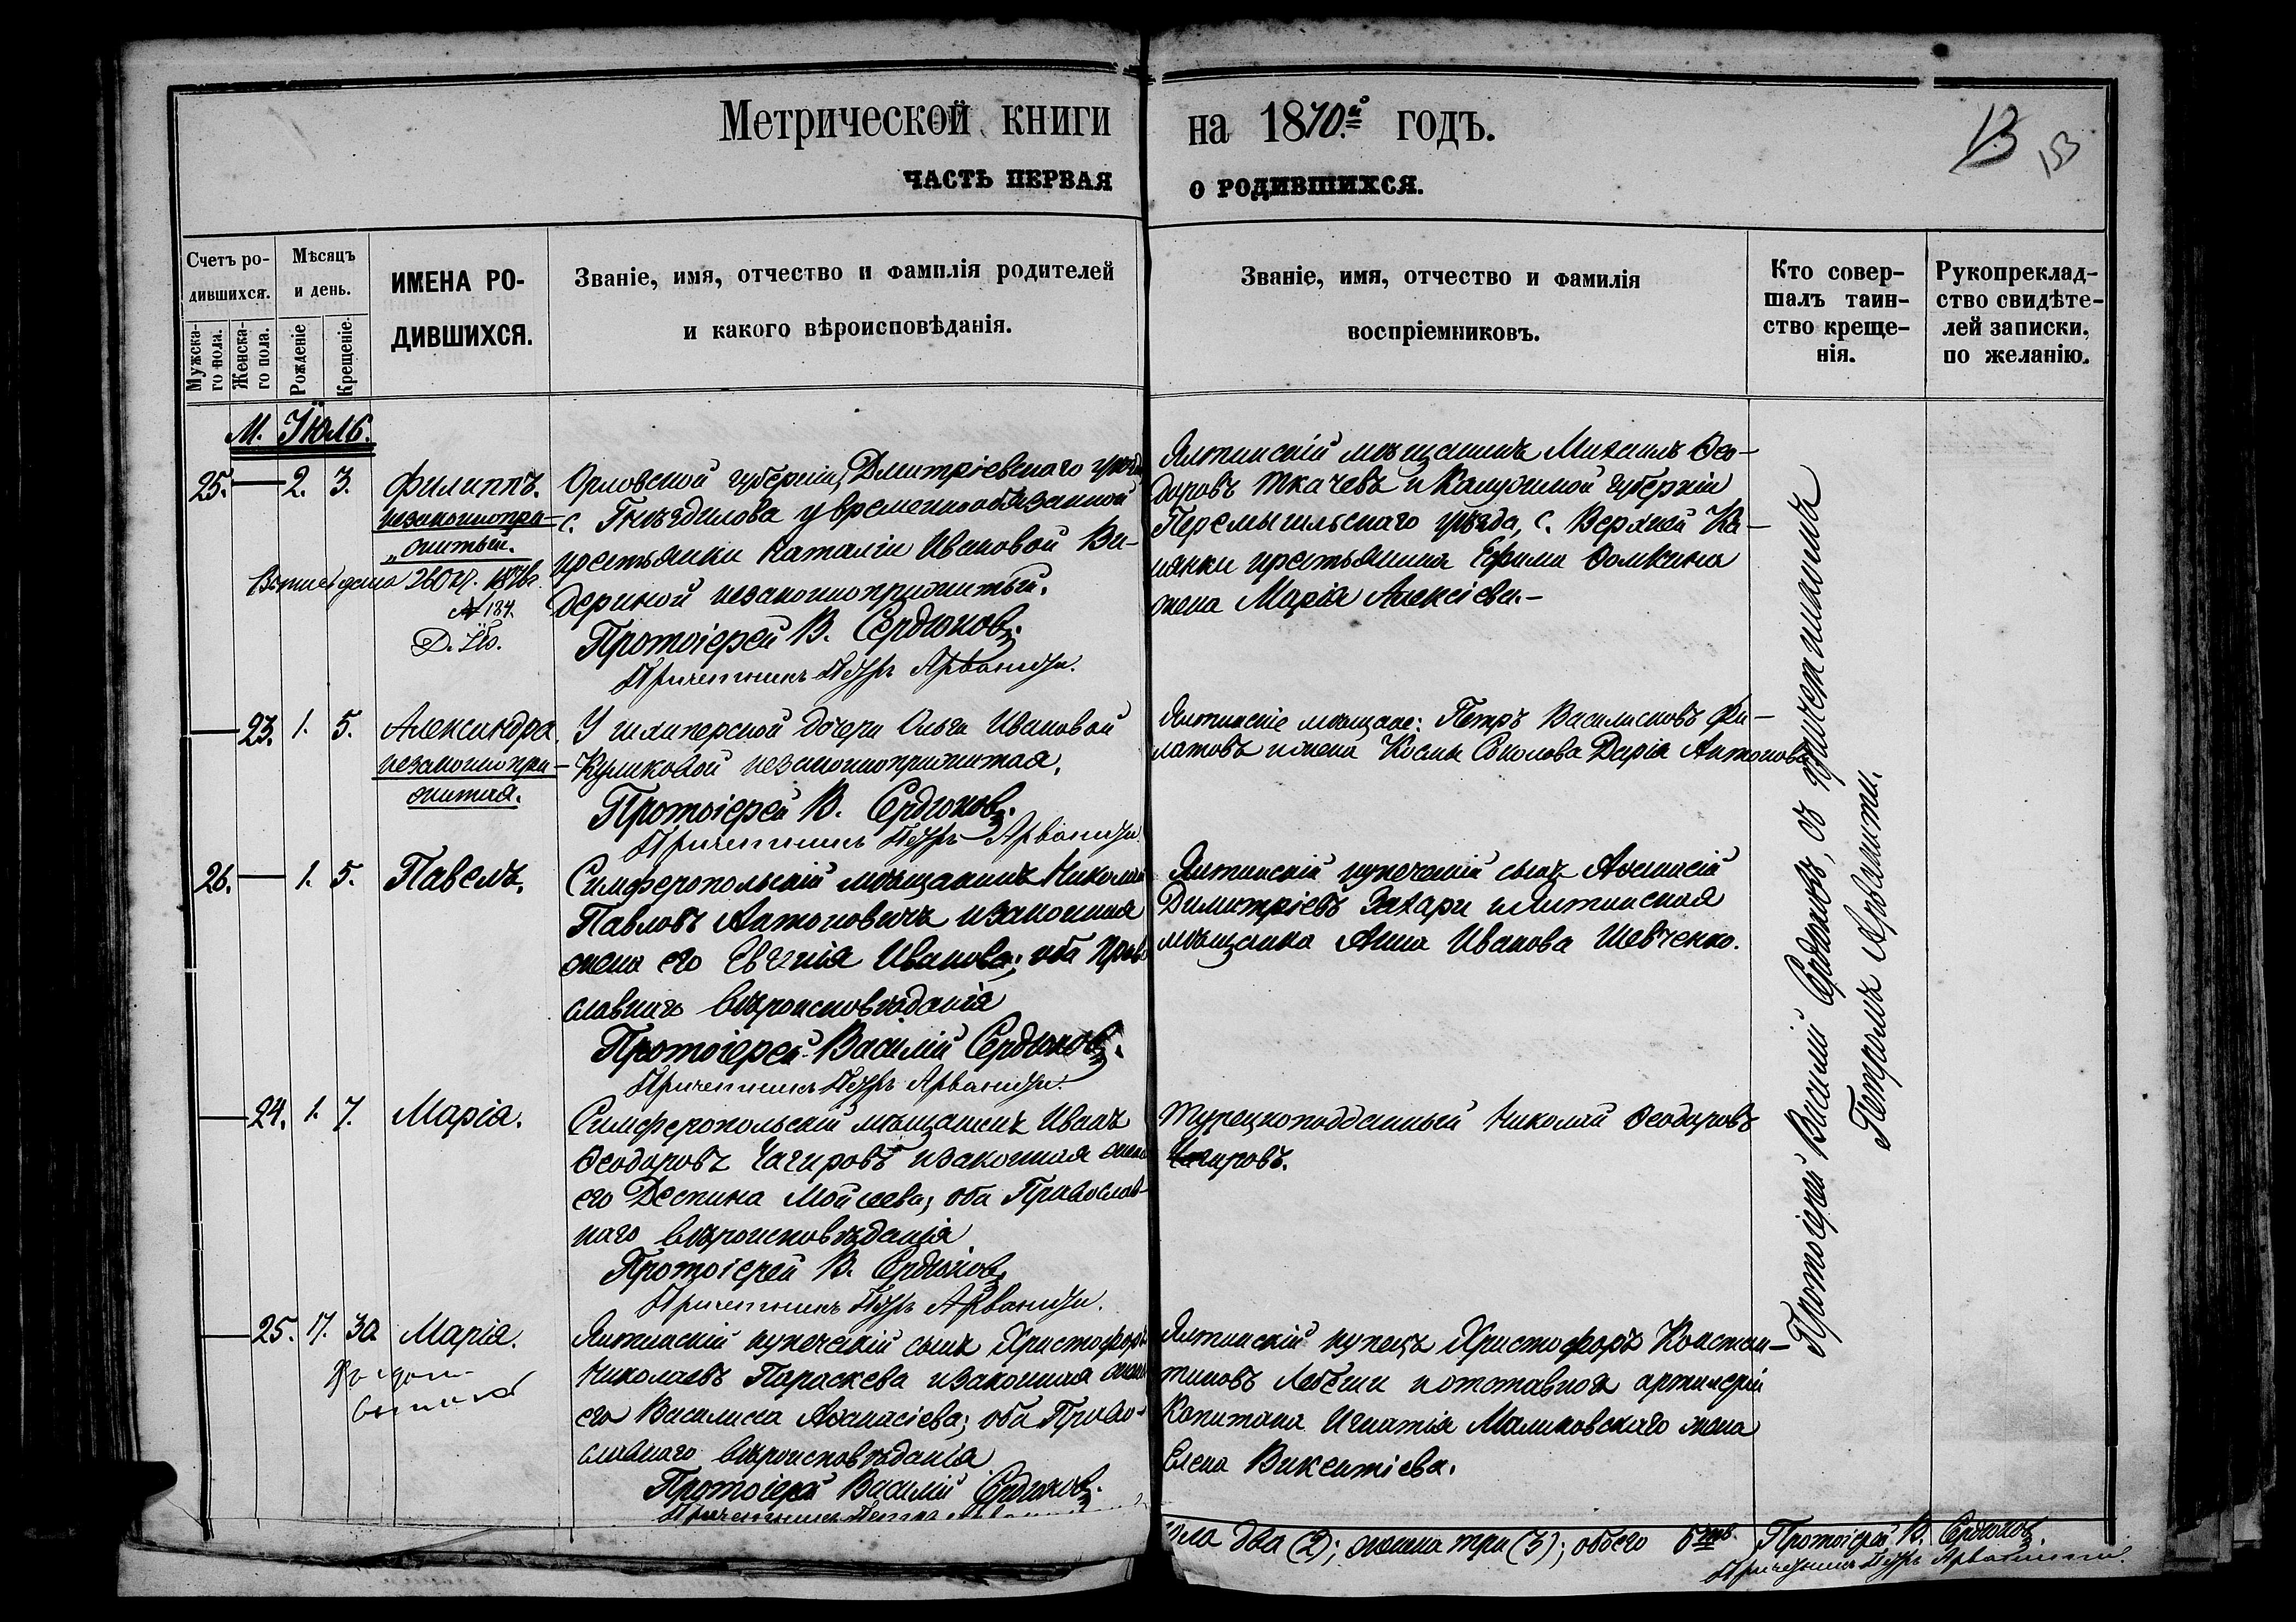 Метрической книги на 1870.й годъ.
ЧАСТЬ ПЕРВАЯ о РОДИВШИХСЯ.
13 153
Счетъ ро-
дившихся.
Мужска-
го пола.
Женска-
го пола.
Мѣсяцъ
и день.
Рожденіе
Крещеніе.
ИМЕНА РО-
ДИВШИХСЯ.
Званіе, имя, отчество и фамилія родителей
и какого вѣроисповѣданія.
Званіе, имя, отчество и фамилія
воспріемниковъ.
Кто совер-
шалъ таин-
ство креще-
нія.
Рукопреклад-
ство свидѣте-
лей записки,
по желанію.
М. Іюль.
25. 2. 3. Филиппъ.
незаконнопри-
житый.
№ 184.
Орловской губерніи, Дмитріевскаго уѣзда
с. Гнѣздилова у временнообязанной
крестьянки Наталіи Ивановой Ви-
дериной незаконноприжитый.
Протоіерей В. Сердюковъ.
Причетникъ Петръ Арванити.
Ялтинскій мѣщанинъ Михаилъ Ѳео-
доровъ Ткачевъ и Калужской губерніи
Перемышльскаго уѣзда, с. Верхней
крестьянина Ефима
жена Марія Алексіева.-
23. 1. 5. Александра
незаконнопри-
житая.
У шкиперской дочери Ольги Ивановой
Куликовой незаконноприжитая.
Протоіерей В. Сердюковъ.
Причетникъ Петръ Арванити.
Ялтинскіе мѣщане: Петръ Василисковъ Фи-
латовъ и жена Космы Соколова Дарія Антонова
26. 1. 5. Павелъ.
Симферопольскій мѣщанинъ Николай
Павловъ Антоновичъ и законная
жена его Евгенія Иванова; оба Право
славнаго вѣроисповѣданія
Протоіерей Василій Сердюковъ.
Причетникъ Петръ Арванити.
Ялтинскій купеческій сынъ Аѳанасій
Димитріевъ Захари и Ялтинская
мѣщанка Анна Иванова Шевченко.
24. 1. 7. Марія.
Симферопольскій мѣщанинъ Иванъ
Ѳеодоровъ Чагировъ и законная жена
его Деспина Мойсеева; оба Православ-
наго вѣроисповѣданія
Протоіерей В. Сердюковъ
Причетникъ Петръ Арванити.
Турецкоподданный Николай Ѳеодоровъ
Чагировъ.
25. 17. 30 Марія.
Ялтинскій купеческій сынъ Христофоръ
Николаевъ Параскева и законная жена
его Василиса Аѳанасіева; оба Право-
славнаго вѣроисповѣданія
Протоіерей Василій Сердюковъ.
Причетникъ Петръ
Ялтинскій купецъ Христофоръ Констан-
тиновъ и отставнаго артилеріи
Капитана Игнатія Малиновскаго жена
Елена Викентіева.
Протоіерей Василій Сердюковъ, съ причетникомъ
Петромъ Арванити.
два (2); женска три (3); обоего 5ть
Протоіерей В. Сердюковъ.
Причетникъ Петръ Арванити.